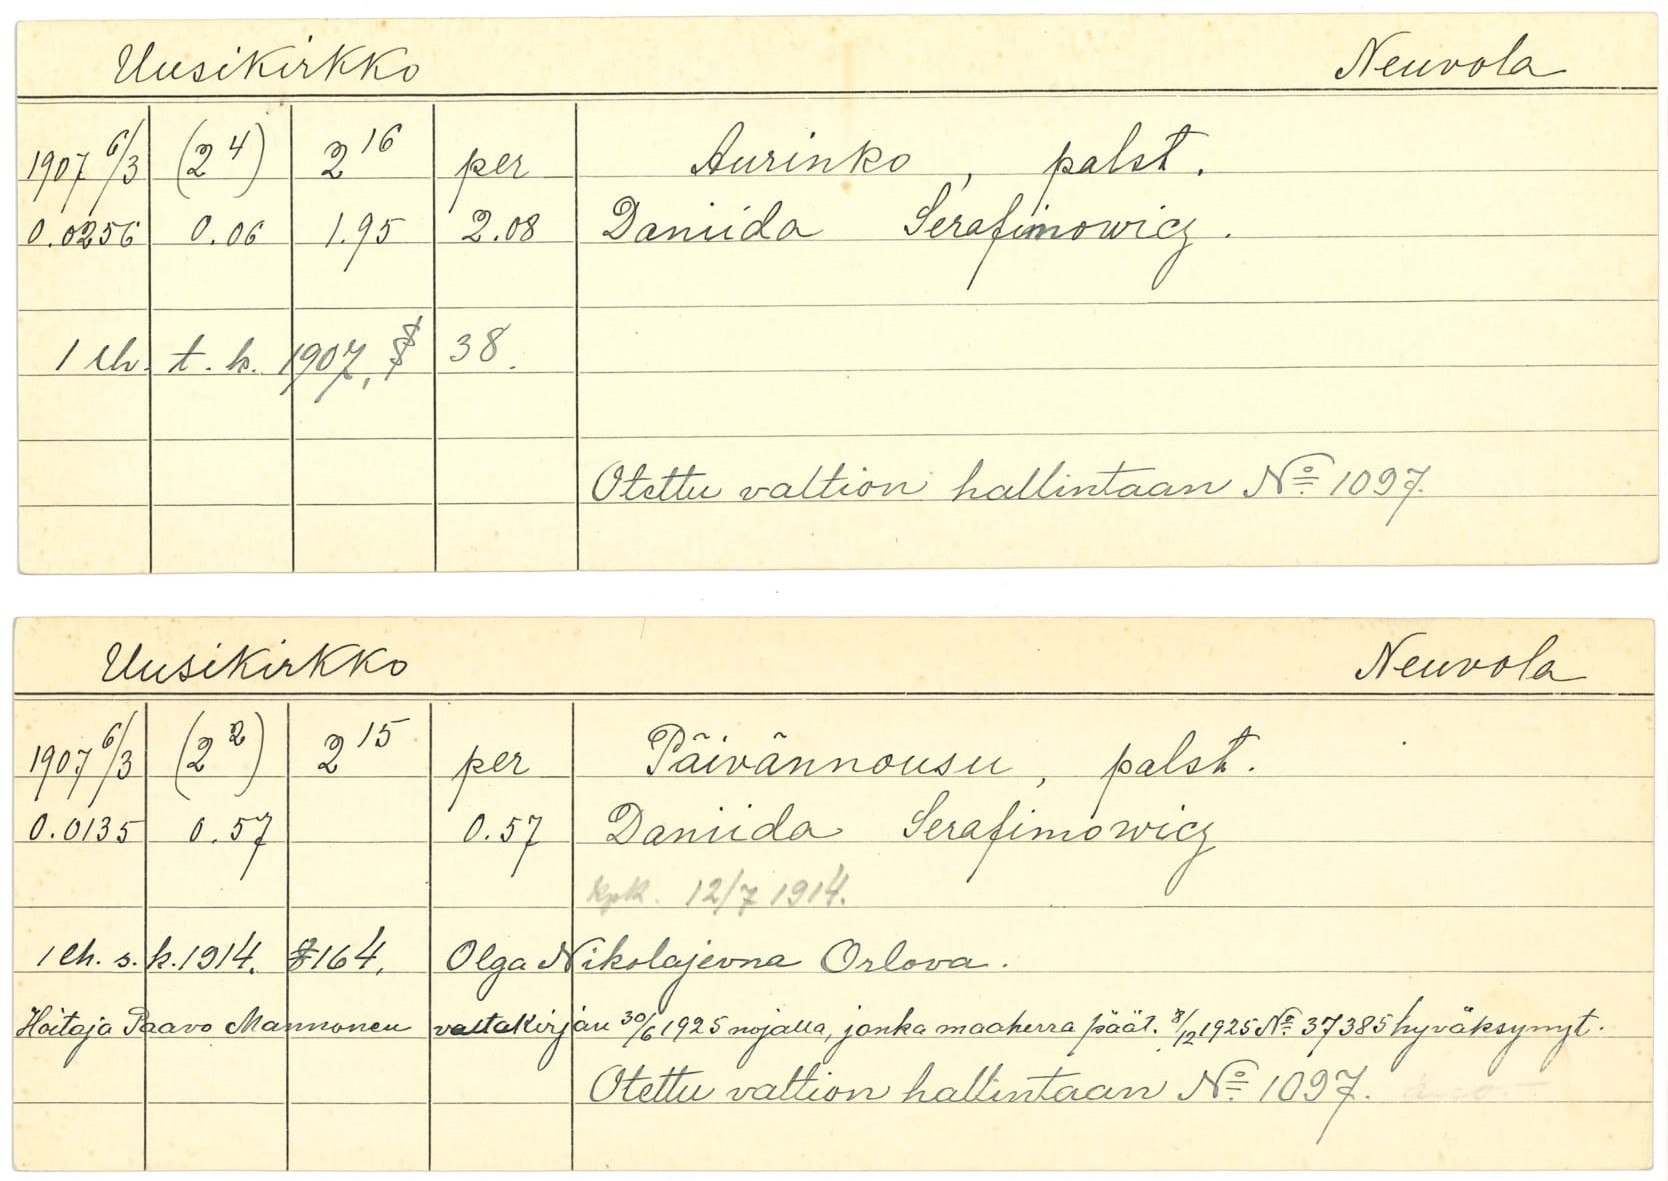 Uusikirkko Neuvola
1907 6/3 (2 4) 2 16 per Aurinko, palst.
0.0256 0.06 1.95 2.08 Daniida Serafimowicz.
1 lh. t. k. 1907, § 38.
Otettu valtion hallintaan No 1097.
Uusikirkko Neuvola
1907 6/3 (2 2) 2 15 per Päivännousu, palst.
0.0135 0.57 0.57 Daniida Serafimowicz
kpk. 12/7 1914.
1 lh. s. k. 1914. § 164. Olga Nikolajevna Orlova.
Hoitaja Paavo Mannonen valtakirjan 30/6 1925 nojalla, jonka maaherra päät. 8/12 1925 No 37385 hyväksynyt.
Otettu valtion hallintaan No 1097.